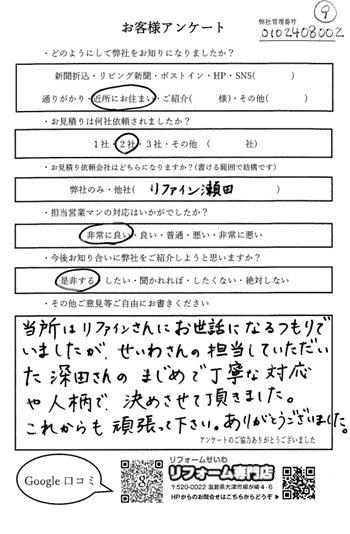 ⑨
お客様アンケート
弊社管理番号
0102408002
・どのようにして弊社をお知りになりましたか？
新聞折込・リビング新聞・ポストイン・HP・SNS(　　　)
通りがかり・近所にお住まい・ご紹介(　　　様)・その他(　　　)
・お見積りは何社依頼されましたか？
1社・2社・3社・その他　(　　　社)
・お見積り依頼会社はどちらになりますか？(書ける範囲で結構です)
弊社のみ・他社(　リファイン瀬田　)
・担当営業マンの対応はいかがでしたか？
非常に良い・良い・普通・悪い・非常に悪い
・今後お知り合いに弊社をご紹介しようと思いますか？
是非する・したい・聞かれれば・したくない・絶対しない
・その他ご意見等ご自由にお書きください
当所はリファインさんにお世話になるつもりで
いましたが、せいわさんの担当していただい
た深田さんのまじめで丁寧な対応
や人柄で、決めさせて頂きました。
これからも頑張って下さい。ありがとうございました。
アンケートのご協力ありがとうございました
Google 口コミ
リフォームせいわ
リフォーム専門店
〒520-0022 滋賀県大津市柳が崎4-6
HPからのお問合せはこちらからどうぞ▶